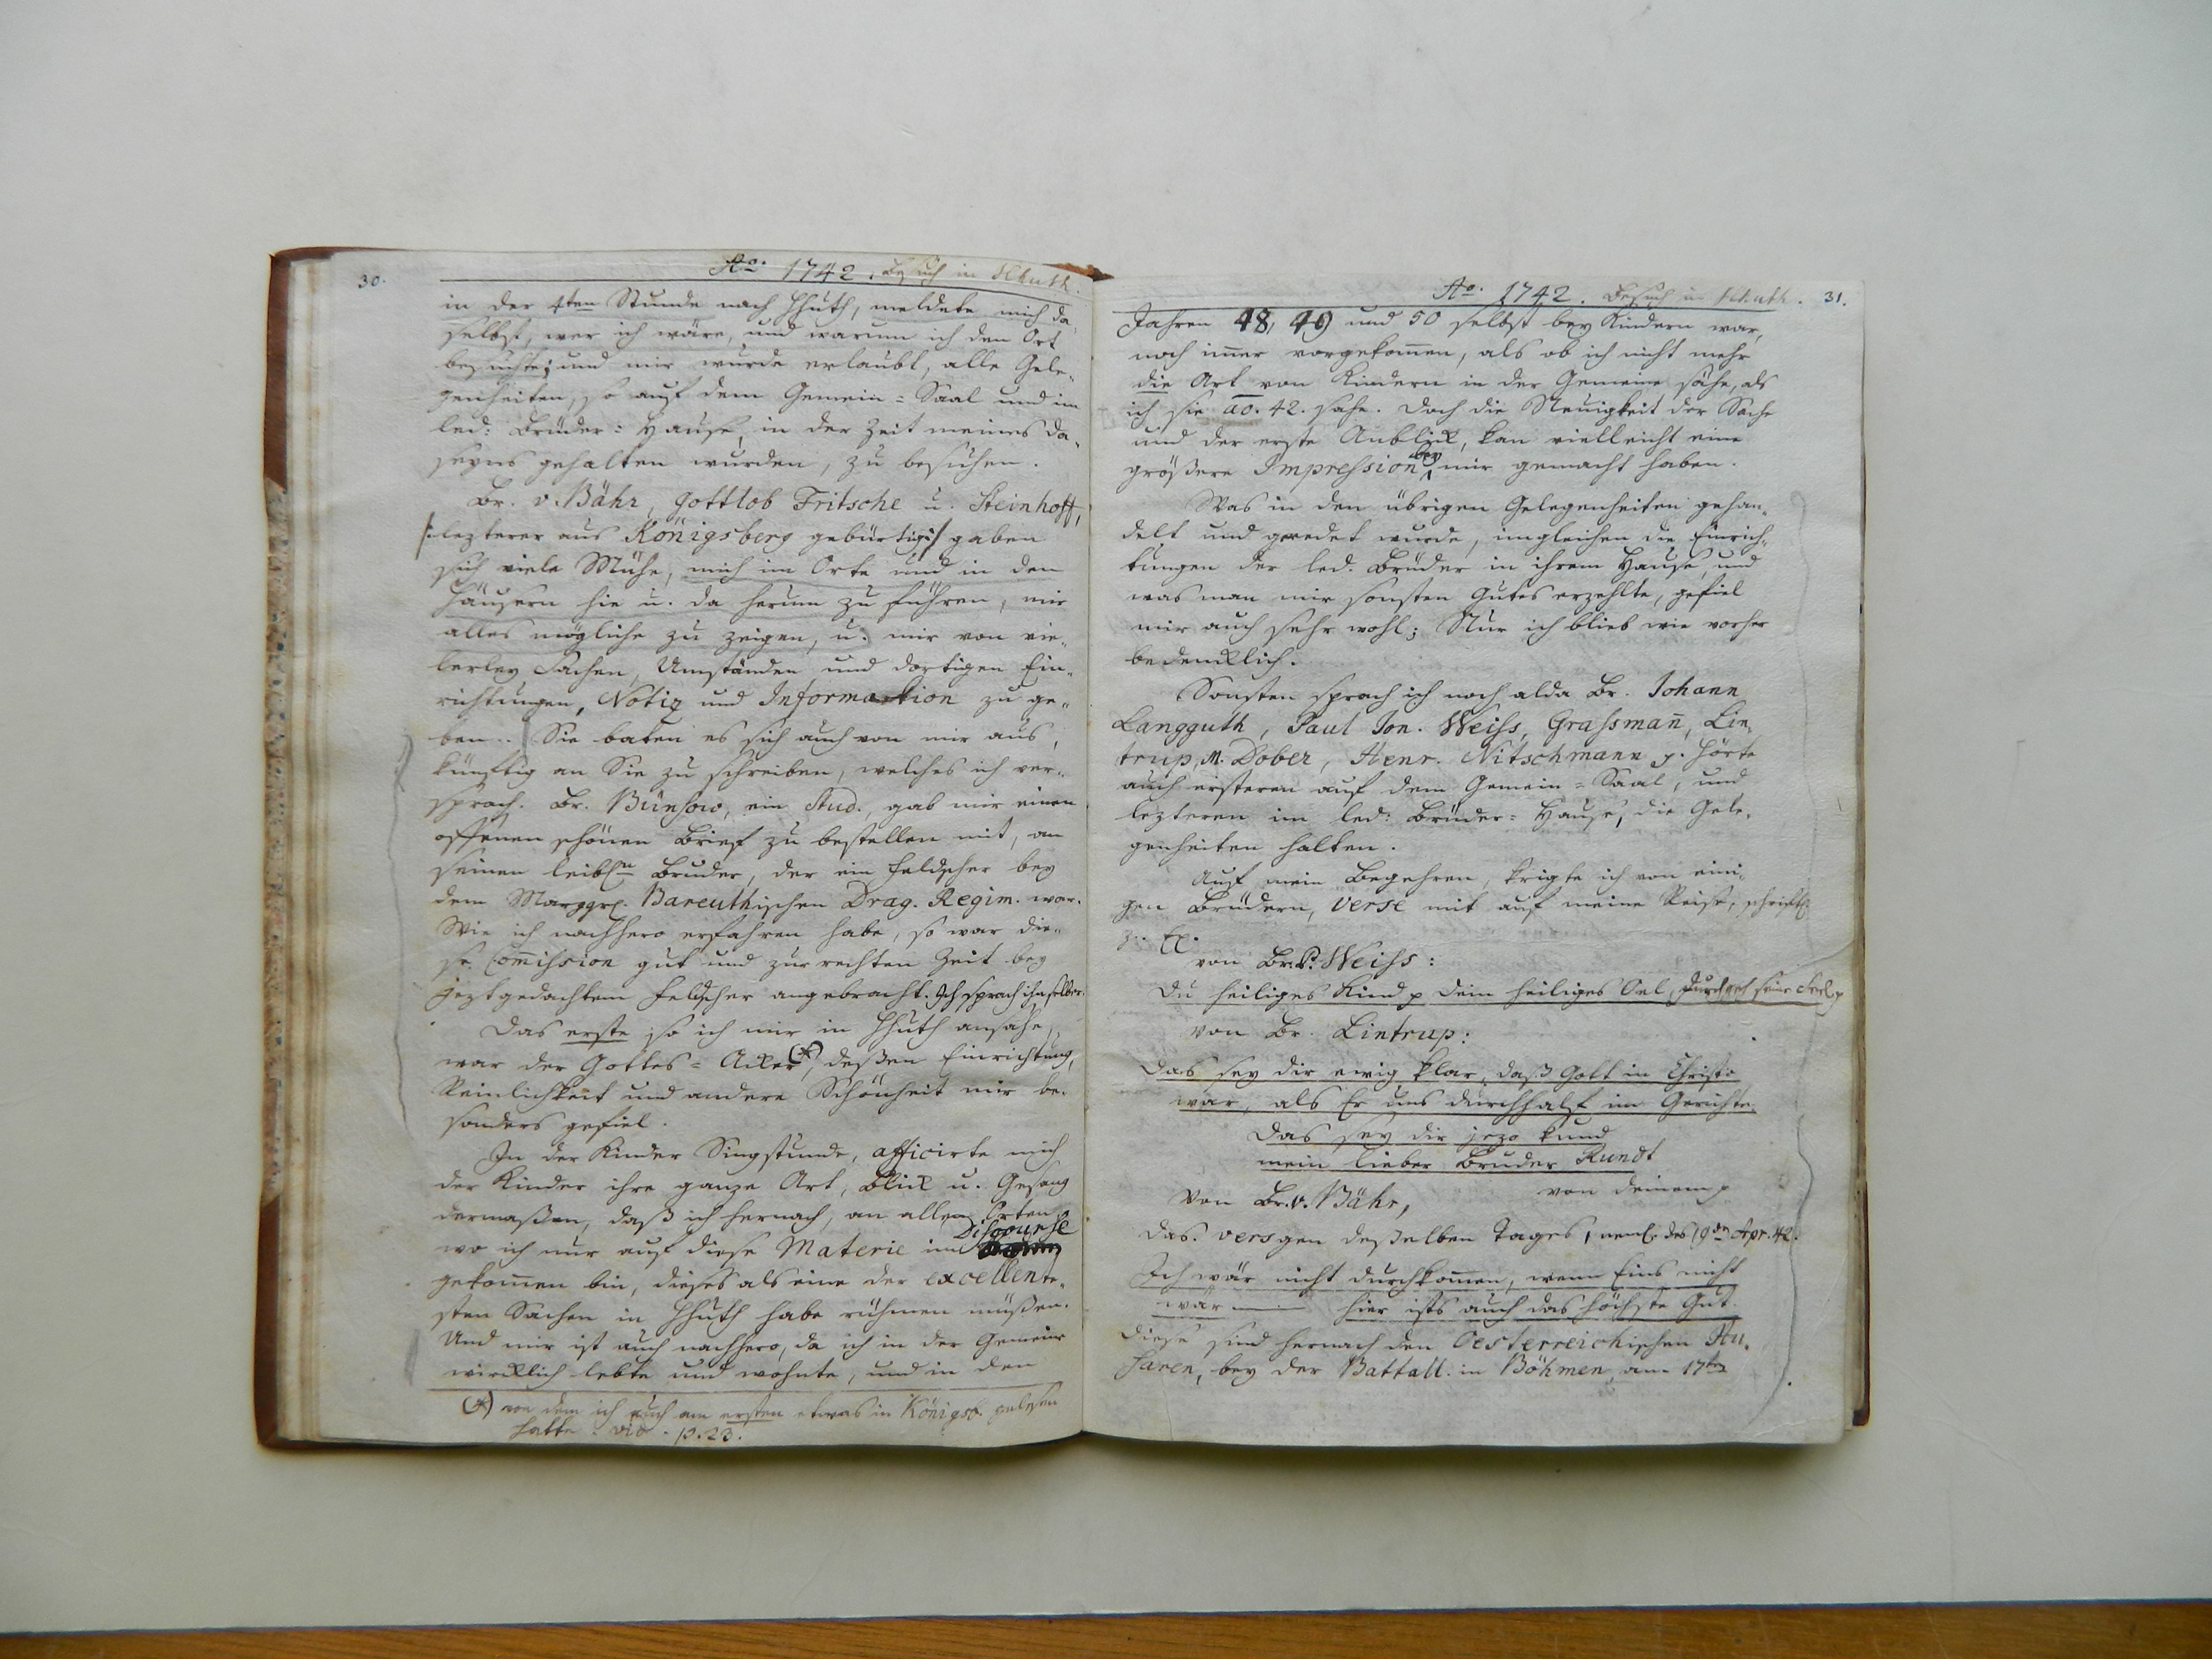 30.
Ao. 1742. Besuch in Hhuth.
in der 4ten Stunde nach Hhuth, meldete mich da-
selbst, wer ich wäre, und warum ich den Ort
besuchte; und mir wurde erlaubt, alle Gele-
genheiten, so auf dem Gemein-Saal und im
led: Brüder-Hause, in der Zeit meines da-
seyns gehalten wurden, zu besuchen.
Br. v. Bähr, Gottlob Fritsche u. Steinhoff,
/: lezterer aus Königsberg gebürtig :/ gaben
sich viele Mühe, mich im Orte und in den
Häusern hie u. da herum zu führen, mir
alles mögliche zu zeigen, u. mir von vie-
lerley Sachen, Umständen und dortigen Ein-
richtungen, Notiz und Information zu ge-
ben. Sie baten es sich auch von mir aus,
künftig an Sie zu schreiben, welches ich ver-
sprach. Br. Bünsow, ein Stud., gab mir einen
offenen schönen Brief zu bestellen mit, an
seinen leibln Bruder, der ein Feldscher bey
dem Marggrl. Bareuthischen Drag. Regim. war.
Wie ich nachhero erfahren habe, so war die-
se Com̄ission gut und zur rechten Zeit bey
jeztgedachtem Feldscher angebracht. Ich sprach ihn selber.
Das erste so ich mir in Hhuth ansahe,
war der Gottes-Acker (*), deßen Einrichtung,
Reinlichkeit und andere Schönheit mir be-
sonders gefiel.
In der Kinder Singstunde, afficirte mich
der Kinder ihre ganze Art, Blick u. Gesang
dermaßen, daß ich hernach, an allen Orten
wo ich nur auf diese Materie im Discourse
gekom̄en bin, dieses als eine der excellente-
sten Sachen in Hhuth habe rühmen müßen.
Und mir ist auch nachhero, da ich in der Gemeine
wircklich lebte und wohnte, und in den
(*) von dem ich auch am ersten etwas in Königsb. gelesen
hatte. vid. p. 23.
Ao. 1742. Besuch in Hhuth. 31.
Jahren 48, 49 und 50 selbst bey Kindern war,
noch im̄er vorgekom̄en, als ob ich nicht mehr
die Art von Kindern in der Gemeine sähe, als
ich sie ao. 42. sahe. Doch die Neuigkeit der Sache
und der erste Anblick, kan vielleicht eine
größere Impression bey mir gemacht haben.
Was in den übrigen Gelegenheiten gehan-
delt und geredet wurde, imgleichen die Einrich-
tungen der led. Brüder in ihrem Hause, und
was man mir sonsten Gutes erzehlte, gefiel
mir auch sehr wohl; Nur ich blieb wie vorher
bedencklich.
Sonsten sprach ich noch alda Br. Johann
Langguth, Paul Jon. Weiss, Grassman̄, Lin-
trup, M. Dober, Henr. Nitschmann p. hörte
auch ersteren auf dem Gemein-Saal, und
lezteren im led: Brüder-Hause, die Gele-
genheiten halten.
Auf mein Begehren, krigte ich von eini-
gen Brüdern, Verse mit auf meine Reise, schriftl.
z. Ex.
von Br. P. Weiss:
Du heiliges Kind p dein heiliges Oel, durchgeh seine Seel p
von Br. Lintrup:
Das sey dir ewig klar, daß Gott in Christo
war, als Er uns durchhalf im Gerichte.
Das sey dir jezo kund
mein lieber Bruder Kundt
von deinem p
Von Br. v. Bähr,
das versgen deßelben Tages, neml. des 19ten Apr. 42.
Ich wär nicht durchkom̄en, wenn Eins nicht
war — hier ists auch das höchste Gut.
Diese sind hernach den Oesterreichischen Hu-
saren, bey der Battall. in Böhmen, am 17ten